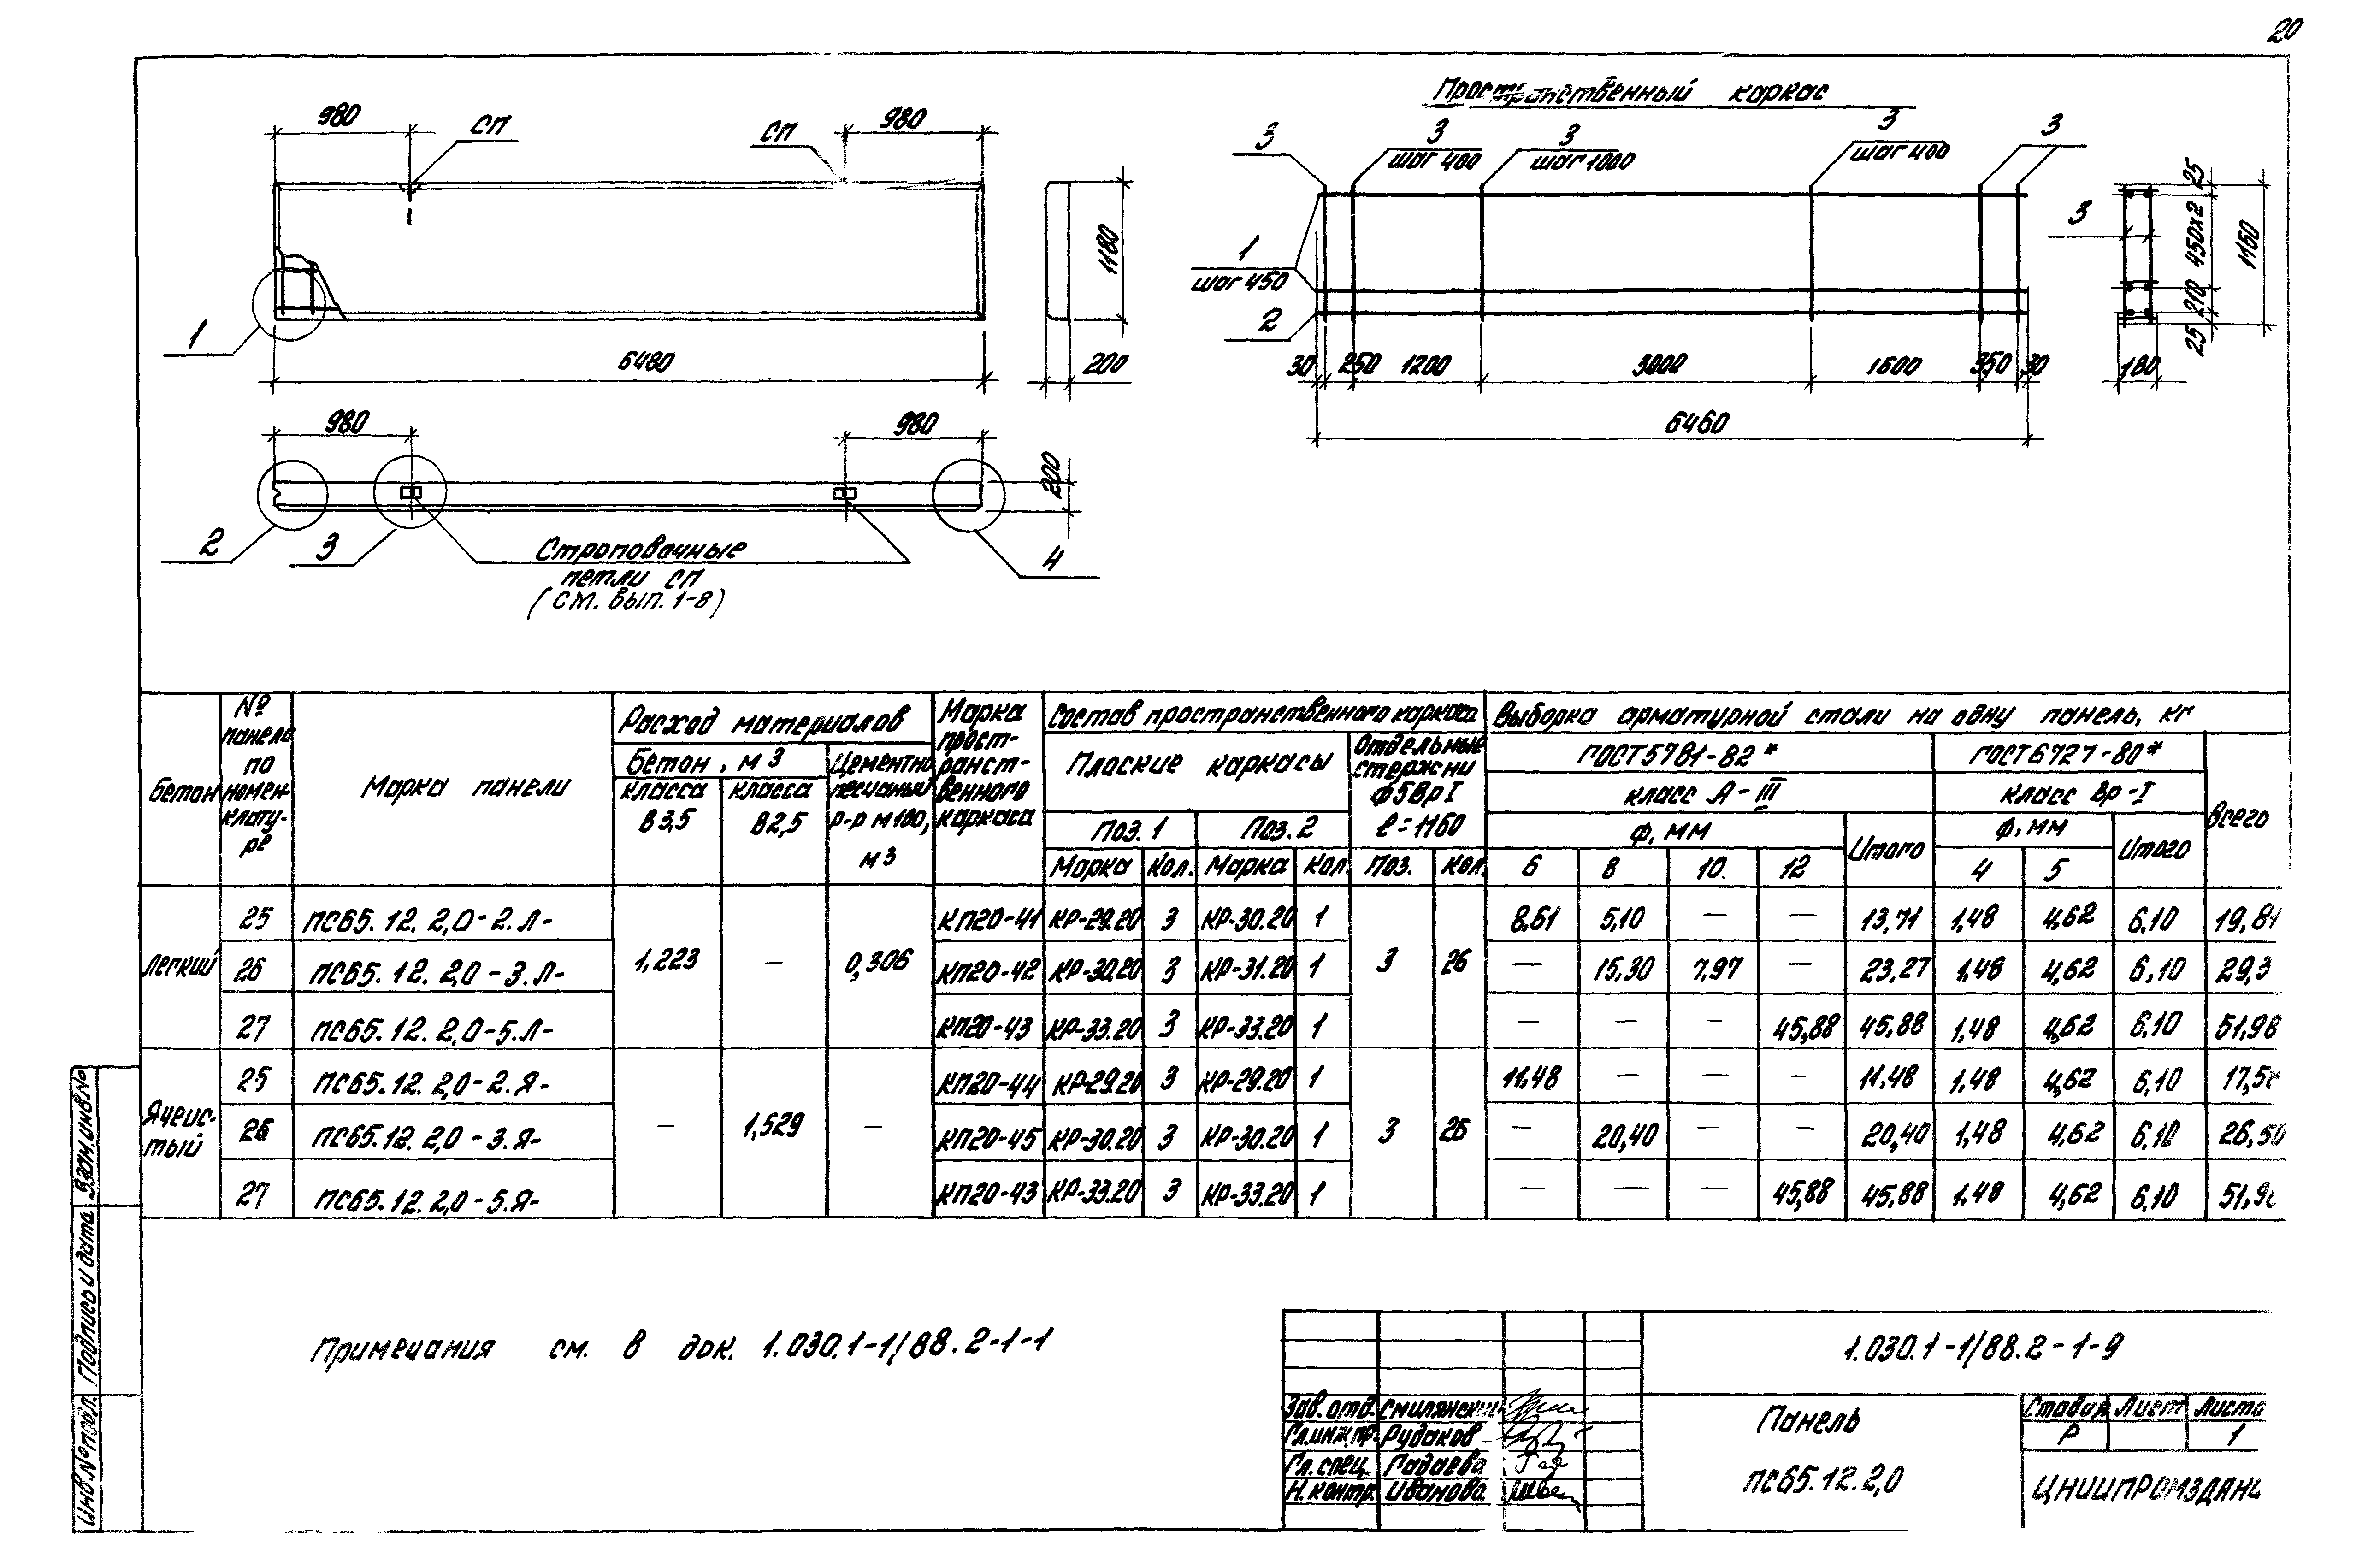 20
Пространственный каркас
980
СП
СП
980
1180
1
6480
200
980
980
200
2
3
4
Строповочные
петли СП
(см. вып. 1-8)
3
3
шаг 400
3
шаг 1000
3
шаг 400
3
1
шаг 450
2
30
250
1200
3000
1600
350
30
6460
3
25
450х2
210
25
1160
180
Бетон
№ панели по номенклатуре
Марка панели
Расход материалов
Бетон, м3
класса В3,5
класса В2,5
Цементно песчаный р-р М100, м3
Марка пространственного каркаса
Состав пространственного каркаса
Плоские каркасы
Поз. 1
Поз. 2
Марка
Кол.
Марка
Кол.
Отдельные стержни ф5ВрI ℓ=1160
Поз.
Кол.
Выборка арматурной стали на одну панель, кг
ГОСТ 5781-82*
класс А-III
ф, мм
6
8
10
12
Итого
ГОСТ 6727-80*
класс Вр-I
ф, мм
4
5
Итого
Всего
Легкий
1,223
—
0,306
3
26
25 ПС65.12.2,0-2.Л- КП20-41 КР-29.20 3 КР-30.20 1 8,61 5,10 — — 13,71 1,48 4,62 6,10 19,81
26 ПС65.12.2,0-3.Л- КП20-42 КР-30.20 3 КР-31.20 1 — 15,30 7,97 — 23,27 1,48 4,62 6,10 29,3
27 ПС65.12.2,0-5.Л- КП20-43 КР-33.20 3 КР-33.20 1 — — — 45,88 45,88 1,48 4,62 6,10 51,98
Ячеистый
—
1,529
—
3
26
25 ПС65.12.2,0-2.Я- КП20-44 КР-29.20 3 КР-29.20 1 11,48 — — — 11,48 1,48 4,62 6,10 17,58
26 ПС65.12.2,0-3.Я- КП20-45 КР-30.20 3 КР-30.20 1 — 20,40 — — 20,40 1,48 4,62 6,10 26,50
27 ПС65.12.2,0-5.Я- КП20-43 КР-33.20 3 КР-33.20 1 — — — 45,88 45,88 1,48 4,62 6,10 51,98
Примечания см. в док. 1.030.1-1/88.2-1-1
Взам. инв №
Подпись и дата
Инв. № подл.
1.030.1-1/88.2-1-9
Зав. отд. Смилянский
Гл. инж. пр. Рудаков
Гл. спец. Гадаева
Н. контр. Иванова
Панель
ПС65.12.2,0
Стадия
Лист
Листо
Р
1
ЦНИИПРОМЗДАНИ